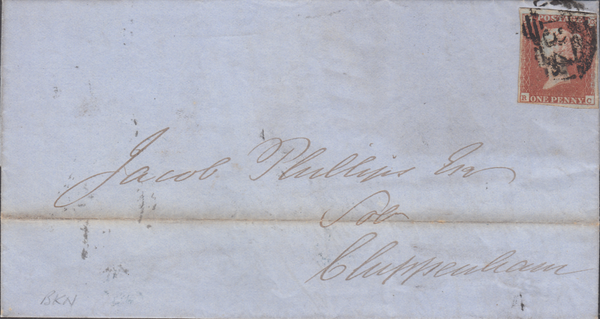 POSTAGE
ONE PENNY
Jacob Phillips Esq
Solr
Chippenham
BKN